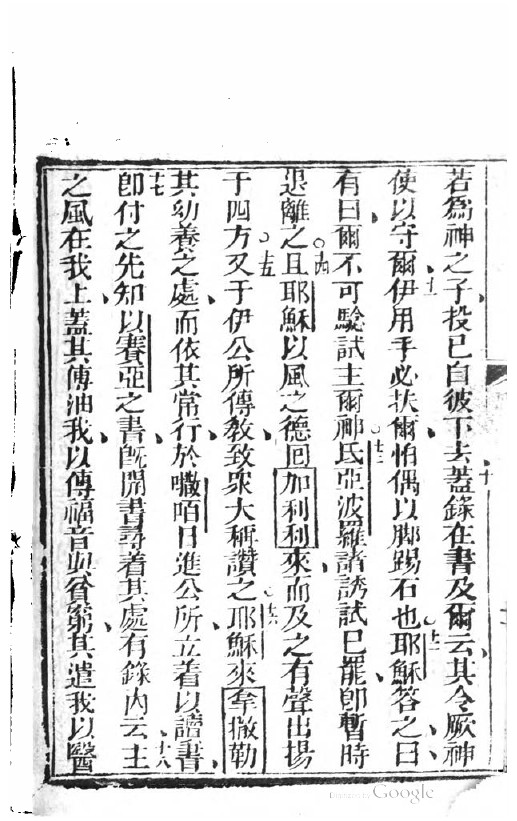 若為神之子投己自彼下去蓋錄在書及爾云其令厥神
十
使以守爾伊用手必扶爾怕偶以脚踢石也耶穌答之曰
十一
十二
有曰爾不可騐試主爾神氏亞波羅諸誘試已罷即暫時
十三
退離之且耶穌以風之德回加利利來而及之有聲出揚
十四
于四方又于伊公所傳敎致衆大稱讚之耶穌來拿撒勒
十五
十六
其幼養之處而依其常行於𠹌咟日進公所立着以讀書
即付之先知以賽亞之書旣開書尋着其處有錄內云主
十七
十八
之風在我上蓋其傅油我以傳福音與貧窮其遣我以醫
Digitized by Google